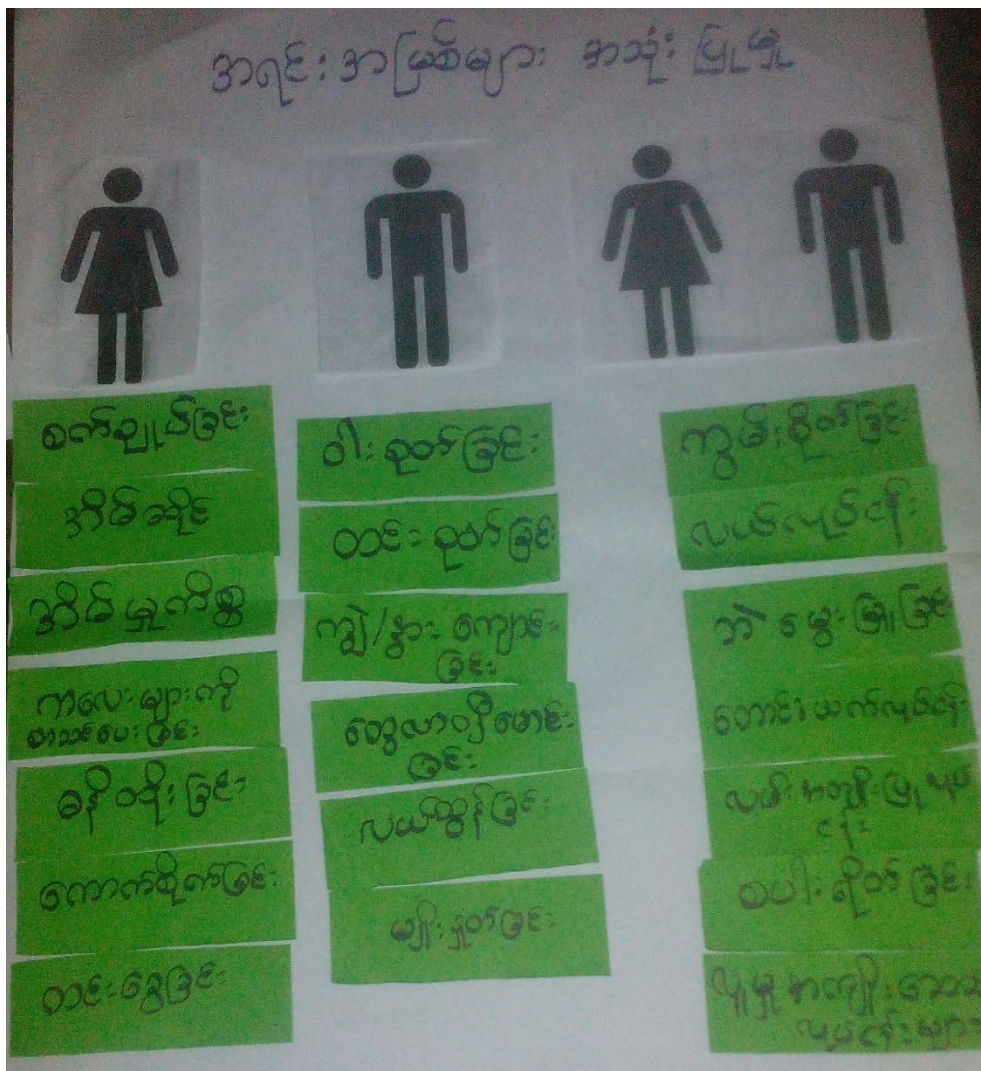 အရင်းအမြစ်များ အသုံးပြုမှု
စက်ချုပ်ခြင်း
အိမ်ဆိုင်
အိမ်မှုကိစ္စ
ကလေးများကို
စာသင်ပေးခြင်း
ဓနိထိုးခြင်း
ကောက်စိုက်ခြင်း
ထင်းခွေခြင်း
ဝါးခုတ်ခြင်း
ထင်းခုတ်ခြင်း
ကျွဲ/နွားကျောင်း
ခြင်း
ထွေလာဂျီမောင်း
ခြင်း
လယ်ထွန်ခြင်း
မျိုးနှုတ်ခြင်း
ကွမ်းစိုက်ခြင်း
လယ်လုပ်ငန်း
ဘဲမွေးမြူခြင်း
တောင်းယက်လုပ်ငန်း
လမ်းအကျိုးပြုလုပ်
ငန်း
စပါးရိတ်ခြင်း
လူမှုအကျိုး
လုပ်ငန်းများ